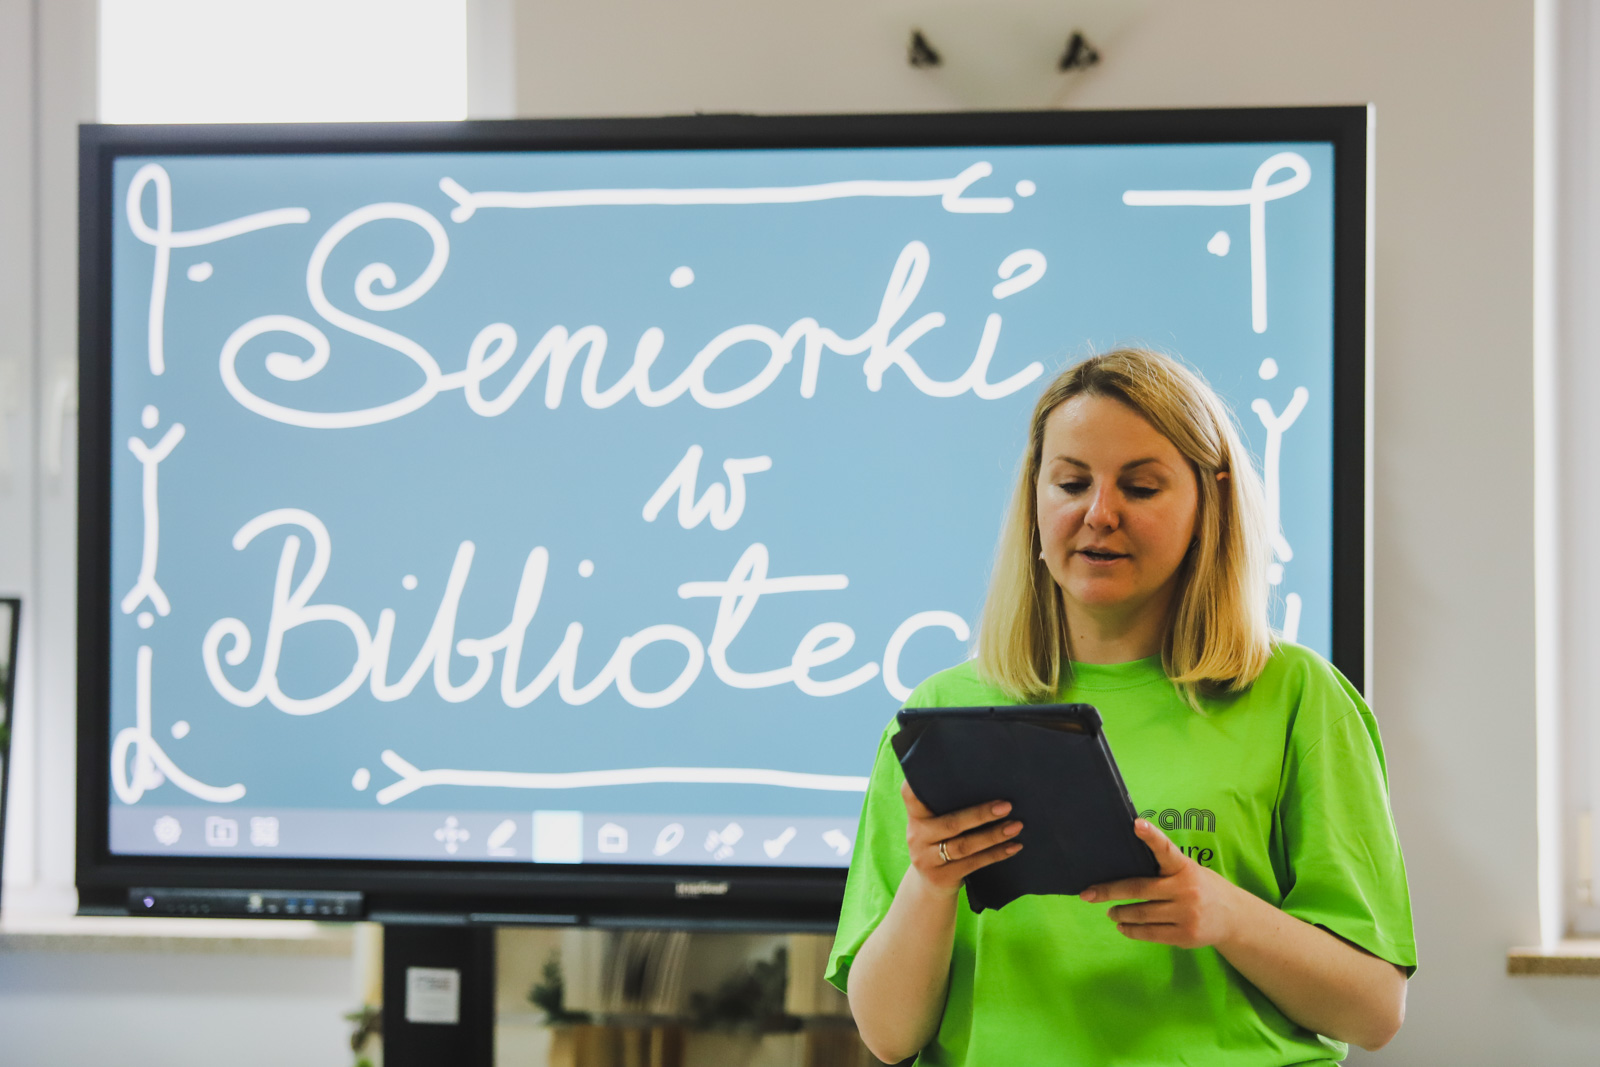 Seniorki
w
Bibliotec
cam
ure